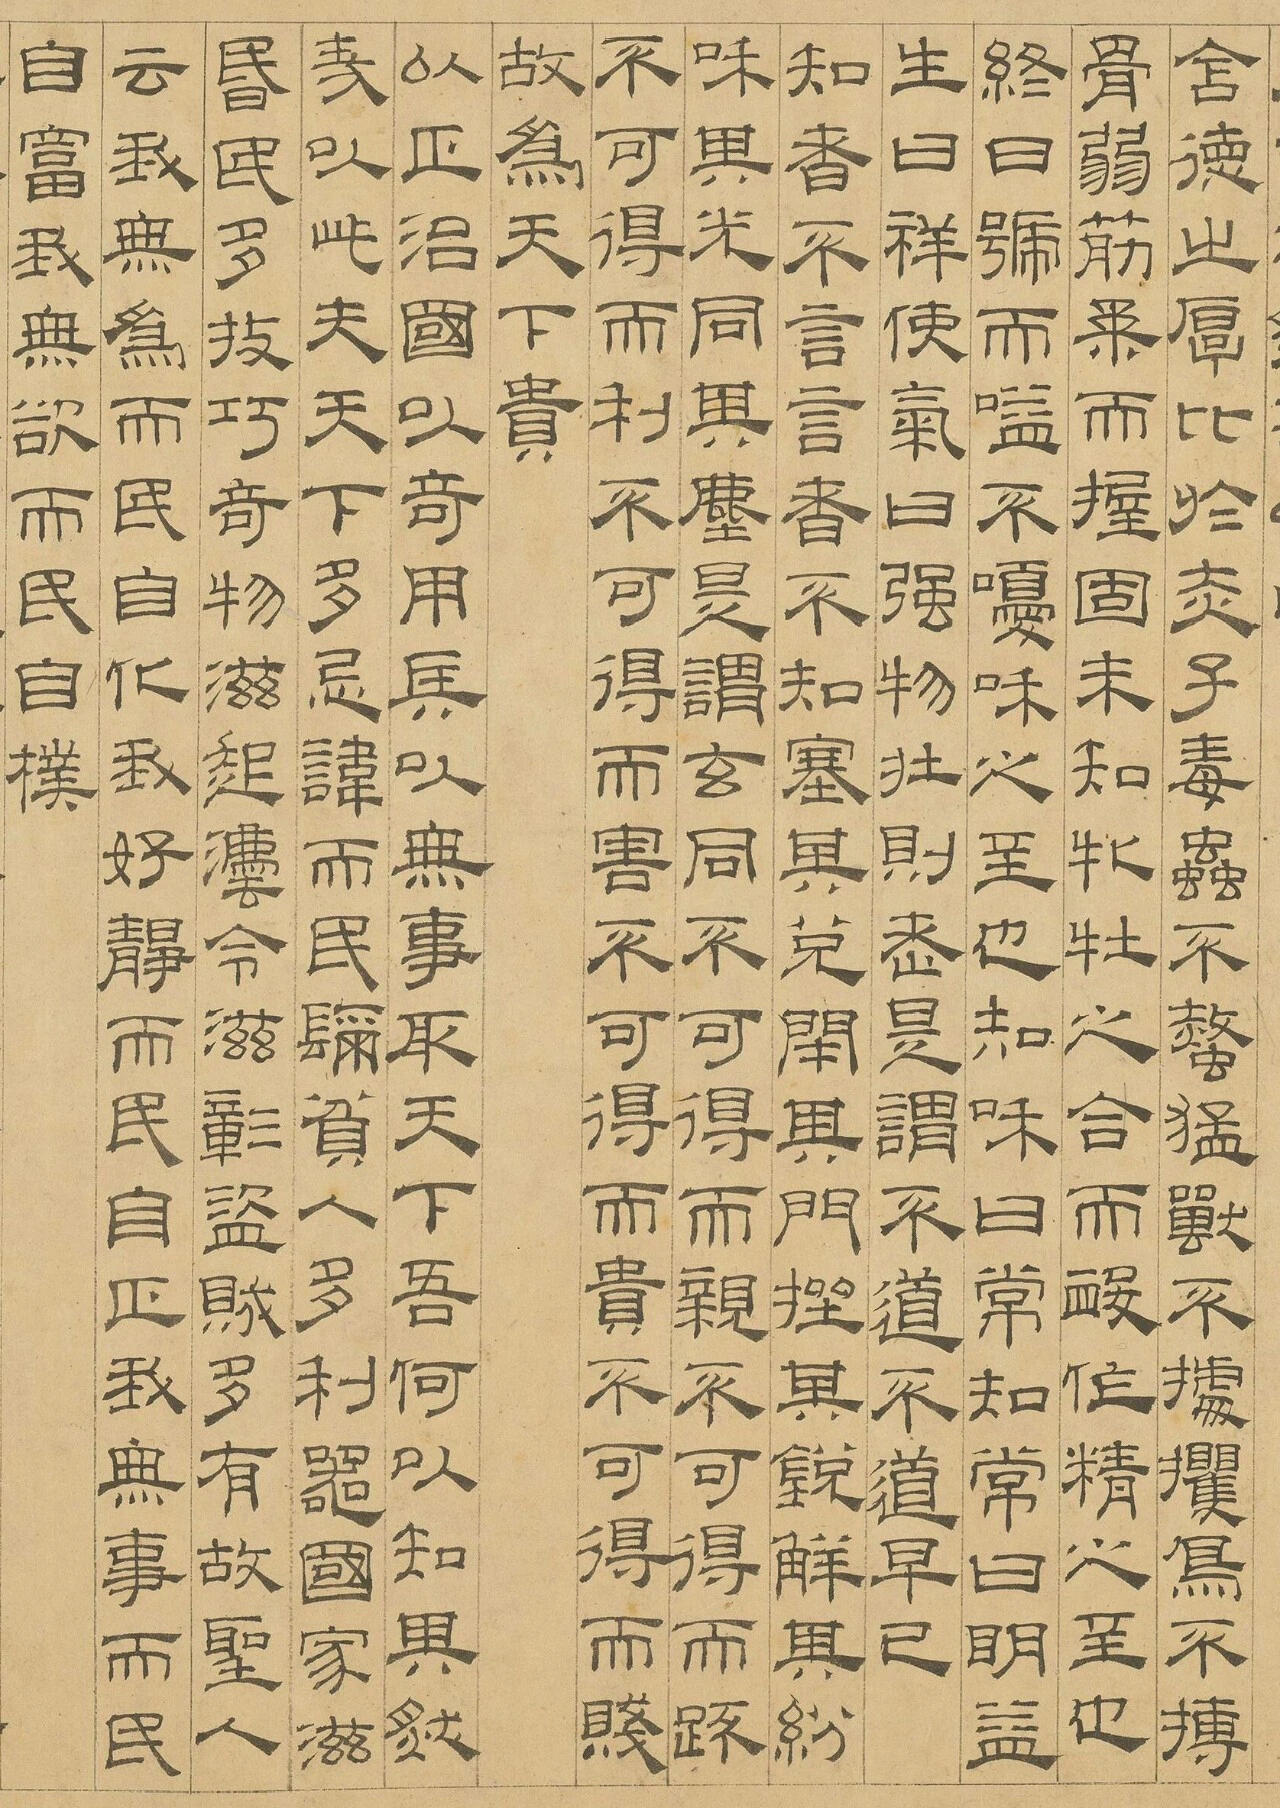 含德之厚比於赤子毒蟲不螫猛獸不據攫鳥不搏
骨弱筋柔而握固未知牝牡之合而䘒作精之至也
終日號而嗌不嚘和之至也知和曰常知常曰明益
生曰祥使氣曰强物壯則老是謂不道不道早已
知者不言言者不知塞其兌閉其門挫其銳解其紛
和其光同其塵是謂玄同不可得而親不可得而踈
不可得而利不可得而害不可得而貴不可得而賤
故爲天下貴
以正治國以奇用兵以無事取天下吾何以知其然
哉以此夫天下多忌諱而民彌貧人多利器國家滋
昬民多技巧奇物滋起法令滋彰盜賊多有故聖人
云我無爲而民自化我好靜而民自正我無事而民
自富我無欲而民自樸